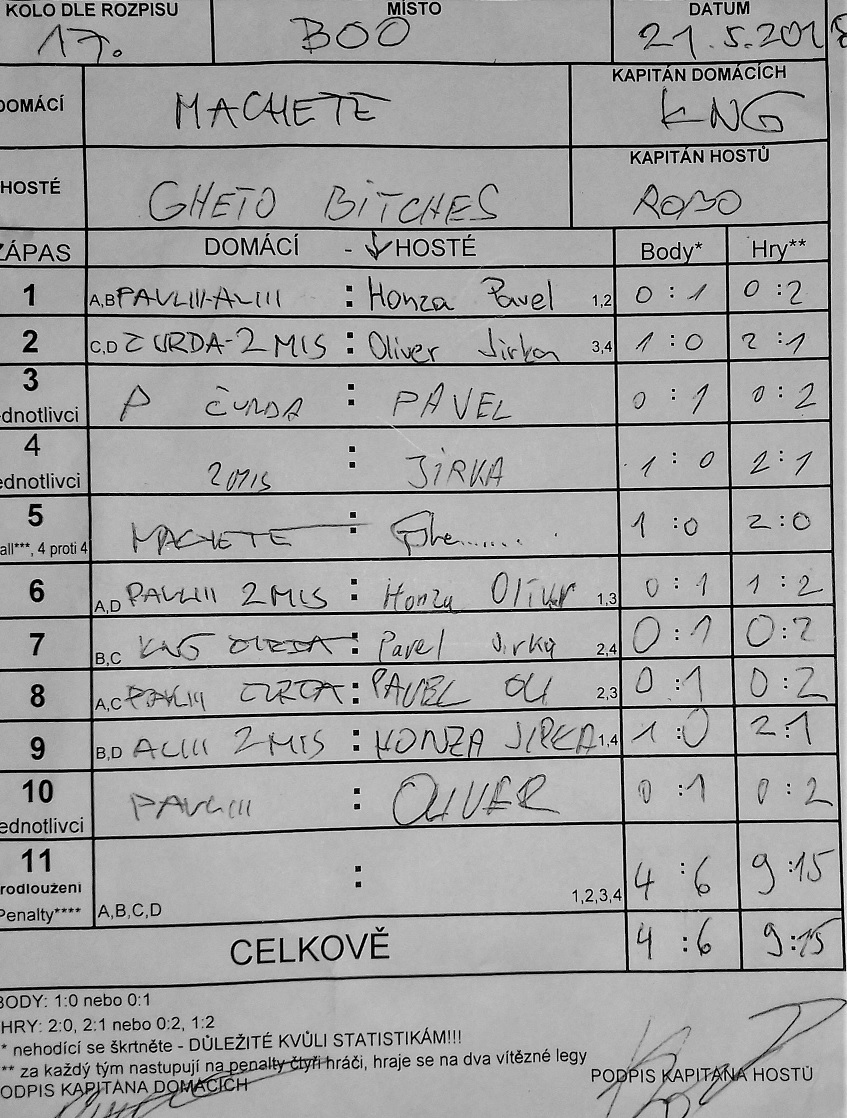 KOLO DLE ROZPISU MÍSTO DATUM
17. BOO 21.5.2018
DOMÁCÍ MACHETE KAPITÁN DOMÁCÍCH
KNG
HOSTÉ GHETO BITCHES KAPITÁN HOSTŮ
ROBO
ZÁPAS DOMÁCÍ - HOSTÉ Body* Hry**
1 A,B PAVLIII-ALIII : Honza Pavel 1,2 0 : 1 0 : 2
2 C,D ČURDA-2MIS : Oliver Jirka 3,4 1 : 0 2 : 1
3 ednotlivci P ČURDA : PAVEL 0 : 1 0 : 2
4 ednotlivci 2MIS : JIRKA 1 : 0 2 : 1
5 all***, 4 proti 4 MACHETE : Ghe....... 1 : 0 2 : 0
6 A,D PAVLIII 2MIS : Honza Oliver 1,3 0 : 1 1 : 2
7 B,C KNG ČURDA : Pavel Jirka 2,4 0 : 1 0 : 2
8 A,C PAVLIII ČURDA : PAVEL OLI 2,3 0 : 1 0 : 2
9 B,D ALIII 2MIS : HONZA JIRKA 1,4 1 : 0 2 : 1
10 ednotlivci PAVLIII : OLIVER 0 : 1 0 : 2
11 rodloužení Penalty**** A,B,C,D : 1,2,3,4 4 : 6 9 : 15
CELKOVĚ 4 : 6 9 : 15
BODY: 1:0 nebo 0:1
HRY: 2:0, 2:1 nebo 0:2, 1:2
* nehodící se škrtněte - DŮLEŽITÉ KVŮLI STATISTIKÁM!!!
** za každý tým nastupují na penalty čtyři hráči, hraje se na dva vítězné legy
ODPIS KAPITÁNA DOMÁCÍCH PODPIS KAPITÁNA HOSTŮ